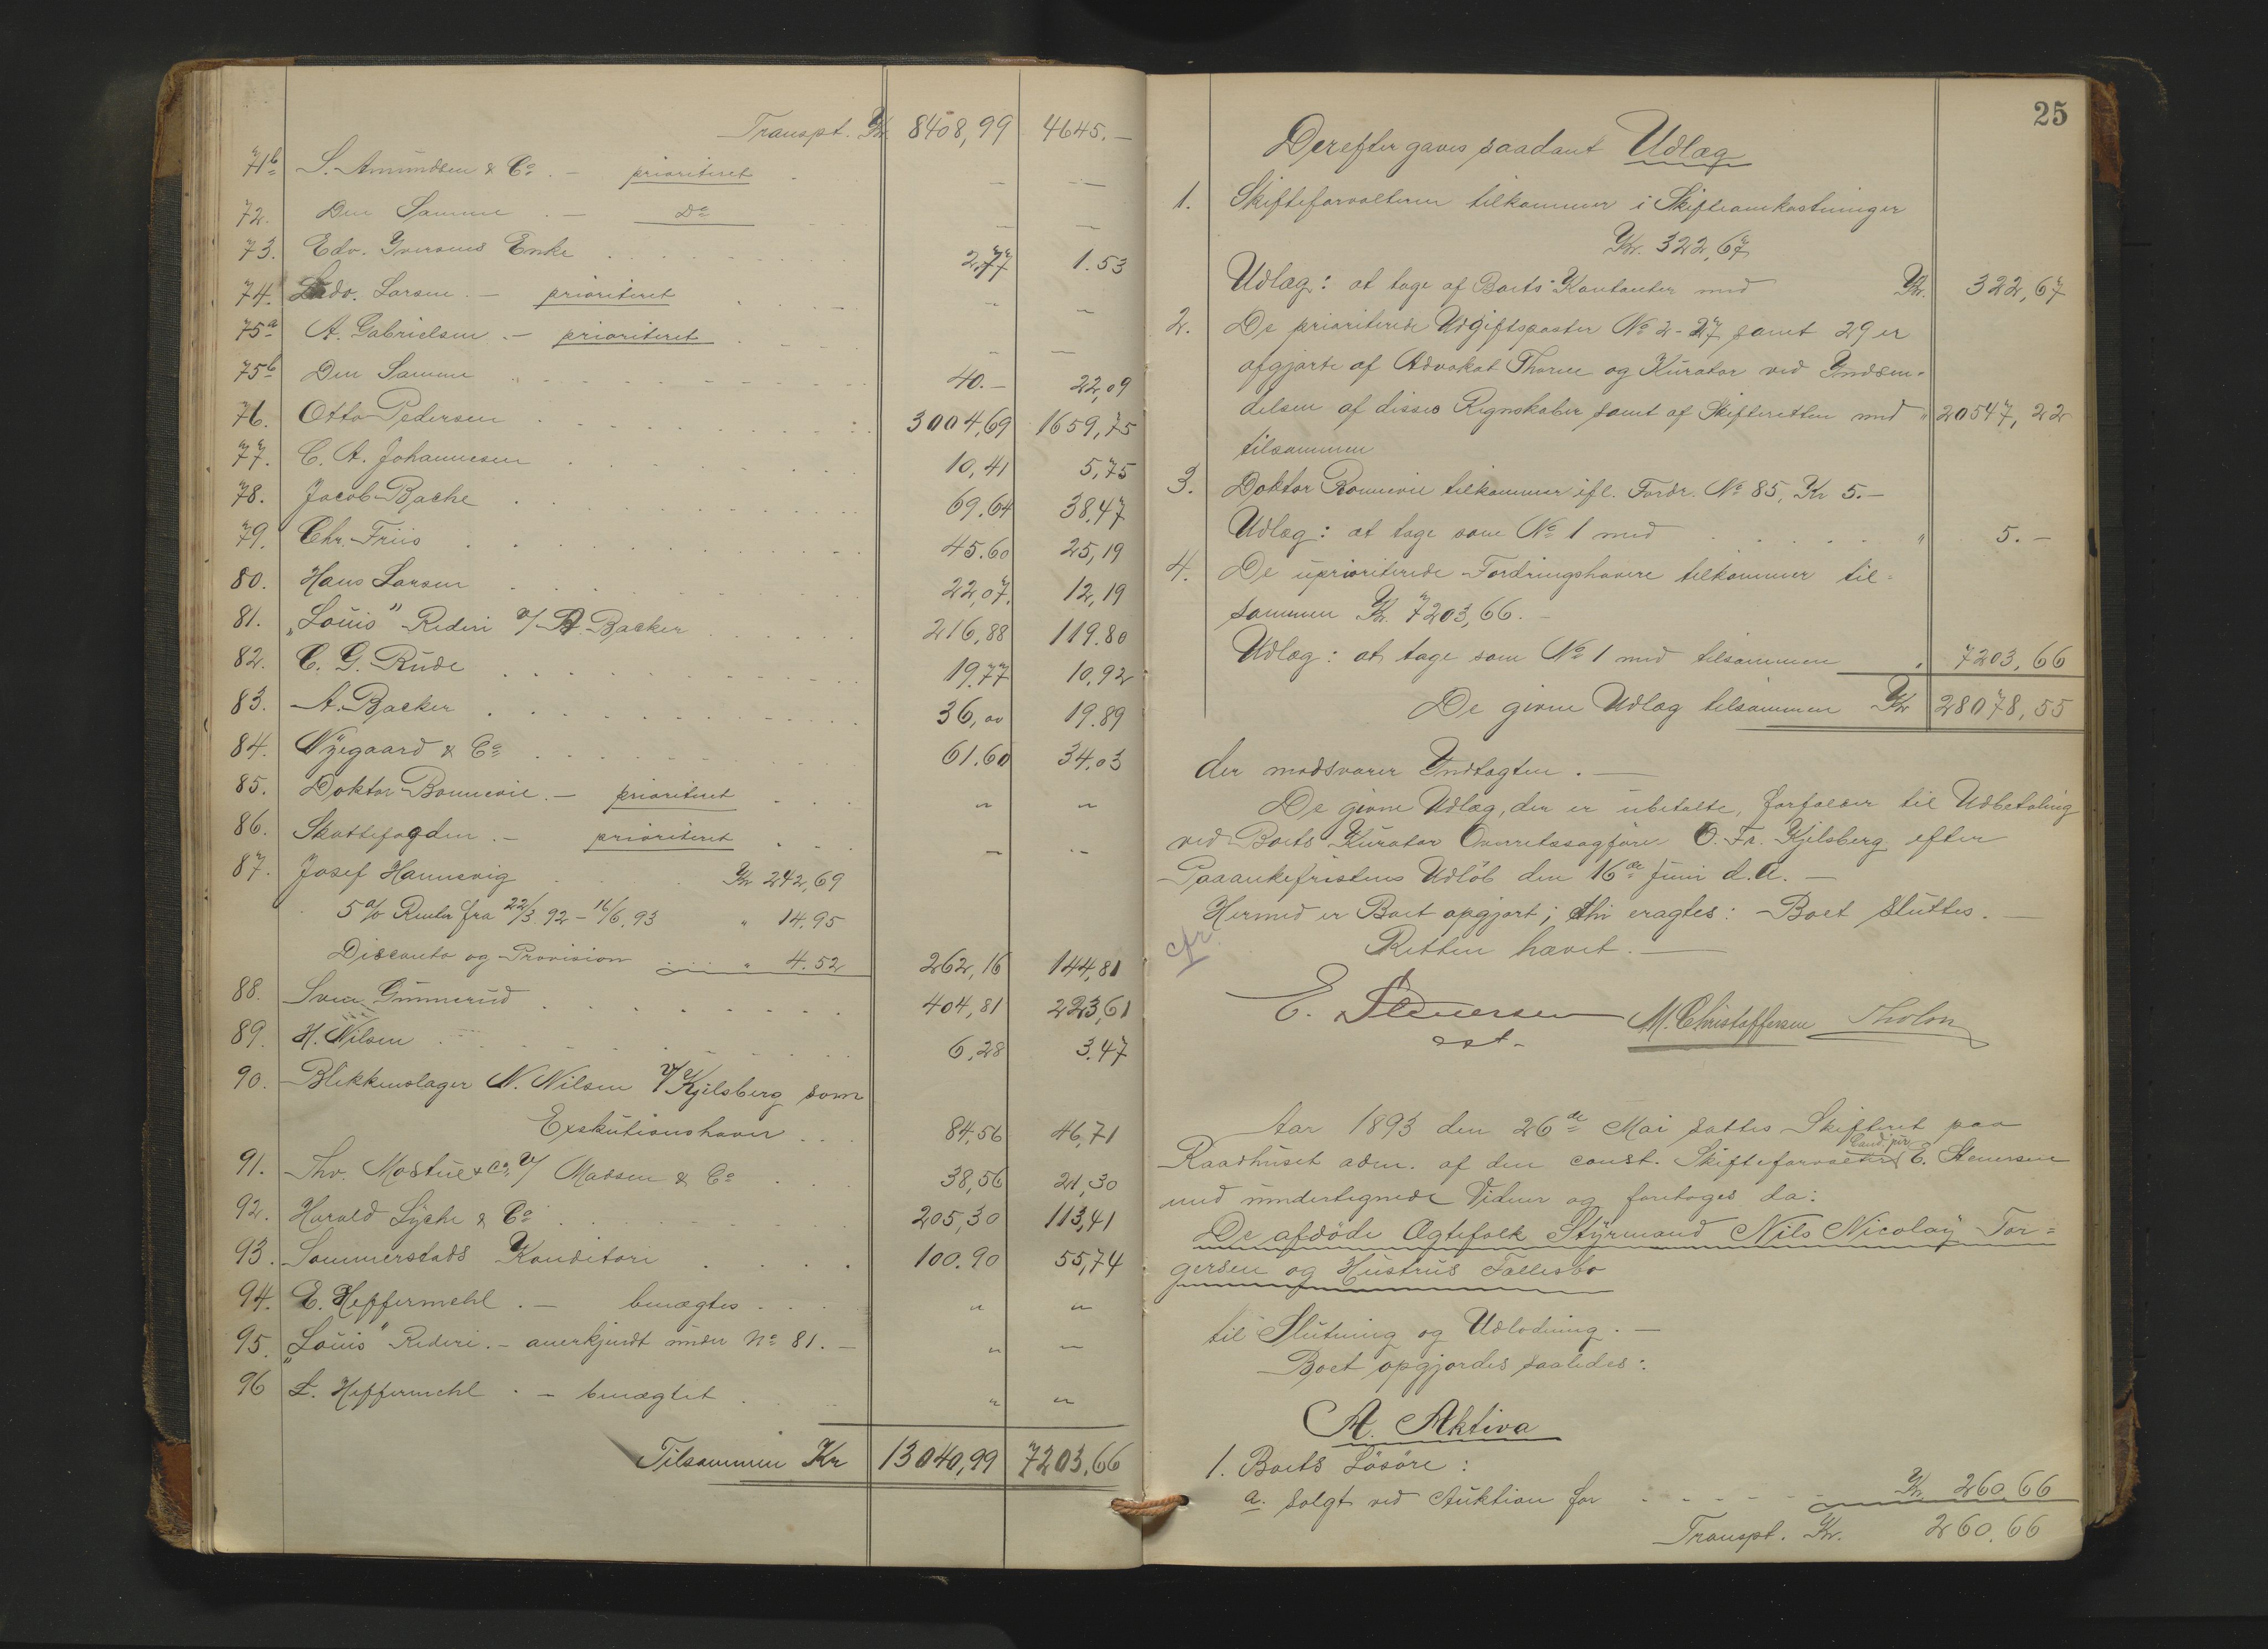 Transpt. Kr 8408,99 4645.–
71b S. Amundsen & Co. – prioriteret – –
72. Den Samme – Do – –
73. Edv. Iversens Enke 2,77 1.53
74. Ludv. Larsen. – prioriteret – –
75a A. Gabrielsen. – prioriteret – –
75b Den Samme 40.– 22,09
76. Otto Pedersen 3004,69 1659,75
77. C. A. Johannesen 10,41 5,75
78. Jacob Bache 69.64 38.47
79. Chr. Friis 45.60 25,19
80. Hans Larsen 22,07. 12,19
81. „Louis" Rederi v/ A. Backer 216,88 119.80
82. C. G. Rude 19.77 10.92
83. A. Backer 36,00 19.89
84. Nygaard & Co 61.60 34.03
85. Doktor Bonnevie. – prioriteret " "
86. Skattefogden. – prioriteret – –
87. Josef Hannevig Kr 242,69
5 % Renter fra 22/3 92 – 16/6 93 " 14.95
Disconto og Provision " 4.52 262,16 144,81
88. Sven Gunnerud 404,81 223,61
89. H. Nilsen 6,28 3.47
90. Blikkenslager N. Nilsen v/ Kjelsberg som
Exekutionshaver 84,56 46,71
91. Thv. Mostue & Co v/ Madsen & Co 38,56 21,30
92. Harald Lyche & Co 205,30 113,41
93. Sommerstads Konditori 100.90 55,74
94. E. Heffermehl. – benægtes " "
95. „Louis" Rederi. – anerkjendt under No 81. – " –
96 L. Heffermehl. – benægtet " "
Tilsammen Kr 13040,99 7203,66
25
Derefter gaves saadant Udlæg
1. Skifteforvalteren tilkommer i Skifteomkostninger
Kr. 322,67
Udlæg: at tage af Boets Kontanter med Kr. 322,67
2. De prioriterede Udgiftsposter No 2-27 samt 29 er
afgjorte af Advokat Thorne og Kurator ved Indsen-
delsen af disses Regnskaber samt af Skifteretten med " 20547,22
tilsammen
3. Doktor Bonnevie tilkommer ifl. Fordr. No 85, Kr 5.–
Udlæg: at tage som No 1 med " 5.–
4. De uprioriterede Fordringshavere tilkommer til=
sammen Kr. 7203,66. –
Udlæg: at tage som No 1 med tilsammen " 7203,66
De givne Udlæg tilsammen Kr 28078,55
der modsvarer Indtægten. –
De givne Udlæg, der er ubetalte, forfalder til Udbetaling
ved Boets Kurator Overretssagfører O. Fr. Kjelsberg efter
Paaankefristens Udløb den 16de Juni d.A. –
Hermed er Boet opgjort; thi eragtes: Boet sluttes. –
cfr.
Retten hævet. –
E. Stenersen M. Christoffersen Tholon
cst.
Aar 1893 den 26de Mai sattes Skifteret paa
Raadhuset adm. af den const. Skifteforvalter Cand. jur. E. Stenersen
med undertegnede Vidner og foretoges da:
De afdøde Ægtefolk Styrmand Nils Nicolay Tor=
gersen og Hustrus Fællesbo
til Slutning og Udlodning. –
Boet opgjordes saaledes:
A. Aktiva
1. Boets Løsøre:
a. solgt ved Auktion for Kr. 260.66
Transpt. Kr. 260.66